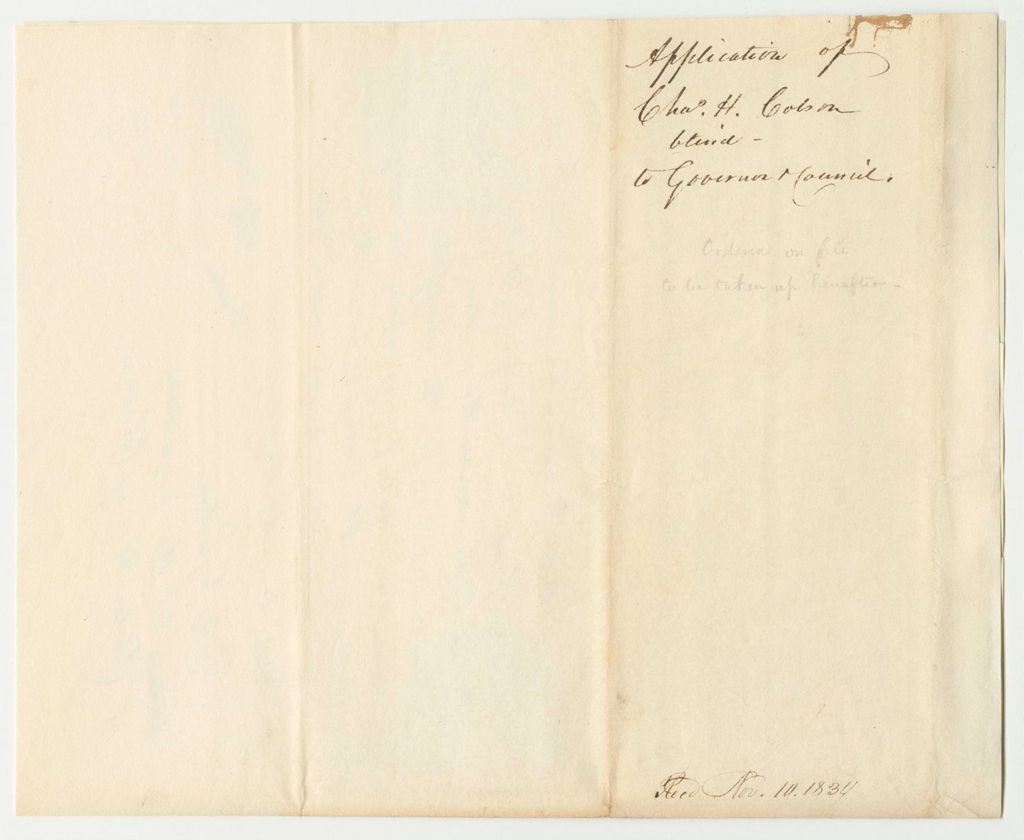 Application of
Chas. H. Colson
blind -
to Governor & Council.
Ordered on file
to be taken up hereafter -
Recd Nov. 10. 1834